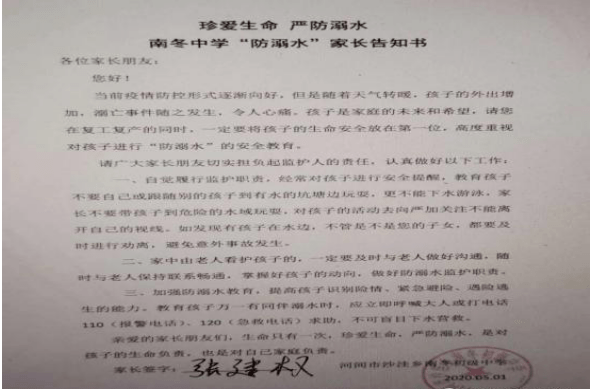 珍爱生命 严防溺水
南冬中学“防溺水”家长告知书
各位家长朋友：
您好！
当前疫情防控形式逐渐向好，但是随着天气转暖，孩子的外出增
加，溺亡事件随之发生，令人心痛。孩子是家庭的未来和希望，请您
在复工复产的同时，一定要将孩子的生命安全放在第一位，高度重视
对孩子进行“防溺水”的安全教育。
请广大家长朋友切实担负起监护人的责任，认真做好以下工作：
一、自觉履行监护职责，经常对孩子进行安全提醒，教育孩子
不要自己或跟随别的孩子到有水的坑塘边玩耍，更不能下水游泳，家
长不要带孩子到危险的水域玩耍，对孩子的活动去向严加关注不能离
开自己的视线。如发现有孩子在水边，不管是不是您的子女，都要及
时进行劝离，避免意外事故发生。
二、家中由老人看护孩子的，一定要及时与老人做好沟通，随
时与老人保持联系畅通，掌握好孩子的动向，做好防溺水监护职责。
三、加强防溺水教育，提高孩子识别险情、紧急避险、遇险逃
生的能力。教育孩子万一有同伴溺水时，应立即呼喊大人或打电话
110（报警电话）、120（急救电话）求助，不可盲目下水营救。
亲爱的家长朋友们，生命只有一次，珍爱生命，严防溺水，是对
孩子的生命负责，也是对自己家庭负责。
家长签字：张建权 河间市沙洼乡南冬初级中学
2020.05.01